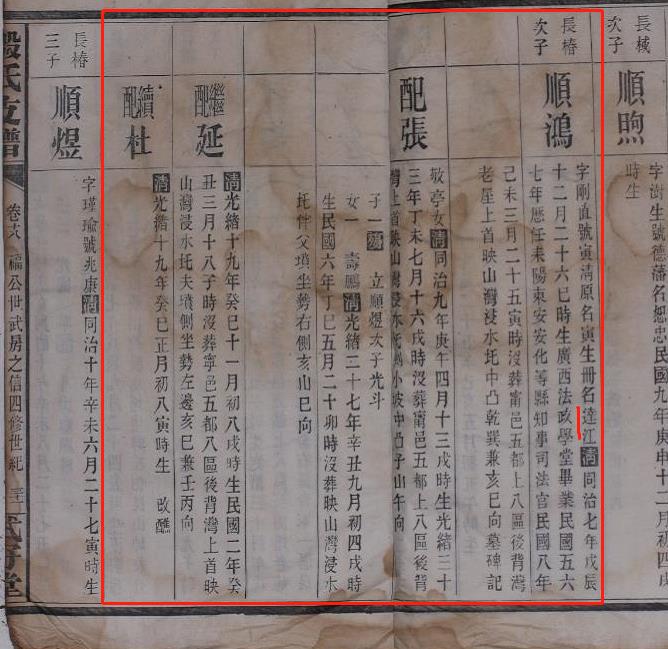 長棫
次子
順煦
字澍生號德藩名恕忠民國九年庚申十二月初四戌
時生
長椿
次子
順鴻
字剛直號寅淸原名寅生冊名達江清同治七年戊辰
十二月二十六巳時生廣西法政學堂畢業民國五六
七年歷任耒陽東安安化等縣知事司法官民國八年
己未三月二十五寅時沒葬甯邑五都上八區後背灣
老屋上首映山灣浸水圫中凸乾巽兼亥巳向墓碑記
配張
敬亭女清同治九年庚午四月十三戌時生光緒三十
三年丁未七月十六戌時沒葬甯邑五都上八區後背
灣上首映山灣浸水圫小坡中凸子山午向
子一 立順煜次子光斗
女一 壽鵬清光緒二十七年辛丑九月初四戌時
生民國六年丁巳五月二十卯時沒葬映山灣浸水
圫伴父墳坐勢右側亥山巳向
繼配延
清光緒十九年癸巳十一月初八戌時生民國二年癸
丑三月十八子時沒葬寧邑五都八區後背灣上首映
山灣浸水圫夫墳側坐勢左邊亥巳兼壬丙向
續配杜
清光緒十九年癸巳正月初八寅時生 改醮
長椿
三子
順煜
字瑾瑜號兆康清同治十年辛未六月二十七寅時生
殷氏支譜
卷十八 福公世武房之信四修世紀
武房堂